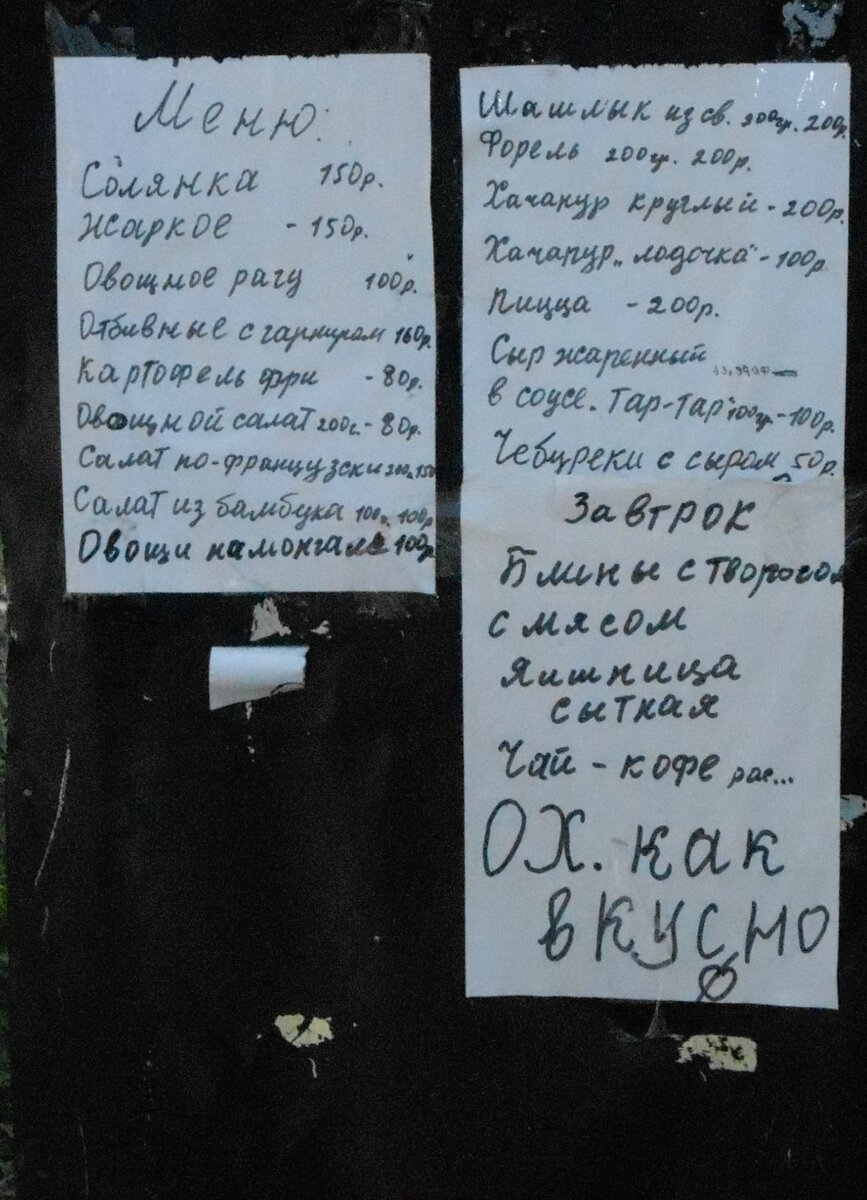 Меню:
Солянка 150р.
Жаркое - 150р.
Овощное рагу 100р.
Отбивные с гарниром 160р.
Картофель фри - 80р.
Овощной салат 200г. - 80р.
Салат по-французски 200г. 150
Салат из бамбука 100г. 100р
Овощи на монгале 100р
Шашлык из св. 200гр. 200р.
Форель 200гр. 200р.
Хачапур круглый - 200р.
Хачапур „лодочка" - 100р.
Пицца - 200р.
Сыр жаренный
в соусе. Тар-тар 100гр. - 100р.
Чебуреки с сыром 50р.
Завтрок
Блины с творогом
с мясом
Яишница
сытная
Чай - кофе рас...
ОХ. как
вкусно